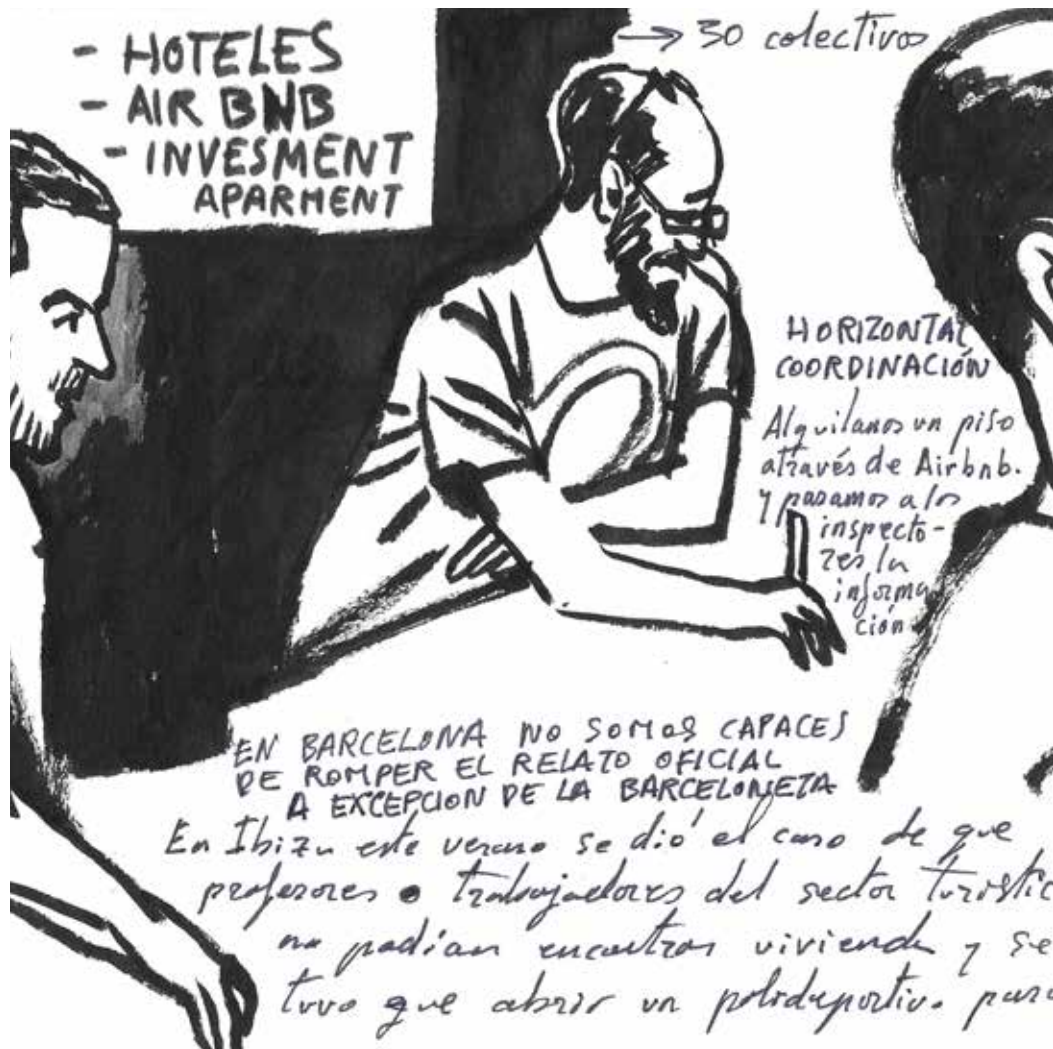 - HOTELES
- AIR BNB
- INVESMENT
APARMENT
→ 30 colectivos
HORIZONTAL
COORDINACIÓN
Alquilamos un piso
através de Airbnb.
y pasamos a los
inspecto-
res la
informa
ción
EN BARCELONA NO SOMOS CAPACES
DE ROMPER EL RELATO OFICIAL
A EXCEPCION DE LA BARCELONETA
En Ibiza este verano se dió el caso de que
profesores o trabajadores del sector turístic
no podían encontrar vivienda y se
tuvo que abrir un polideportivo para